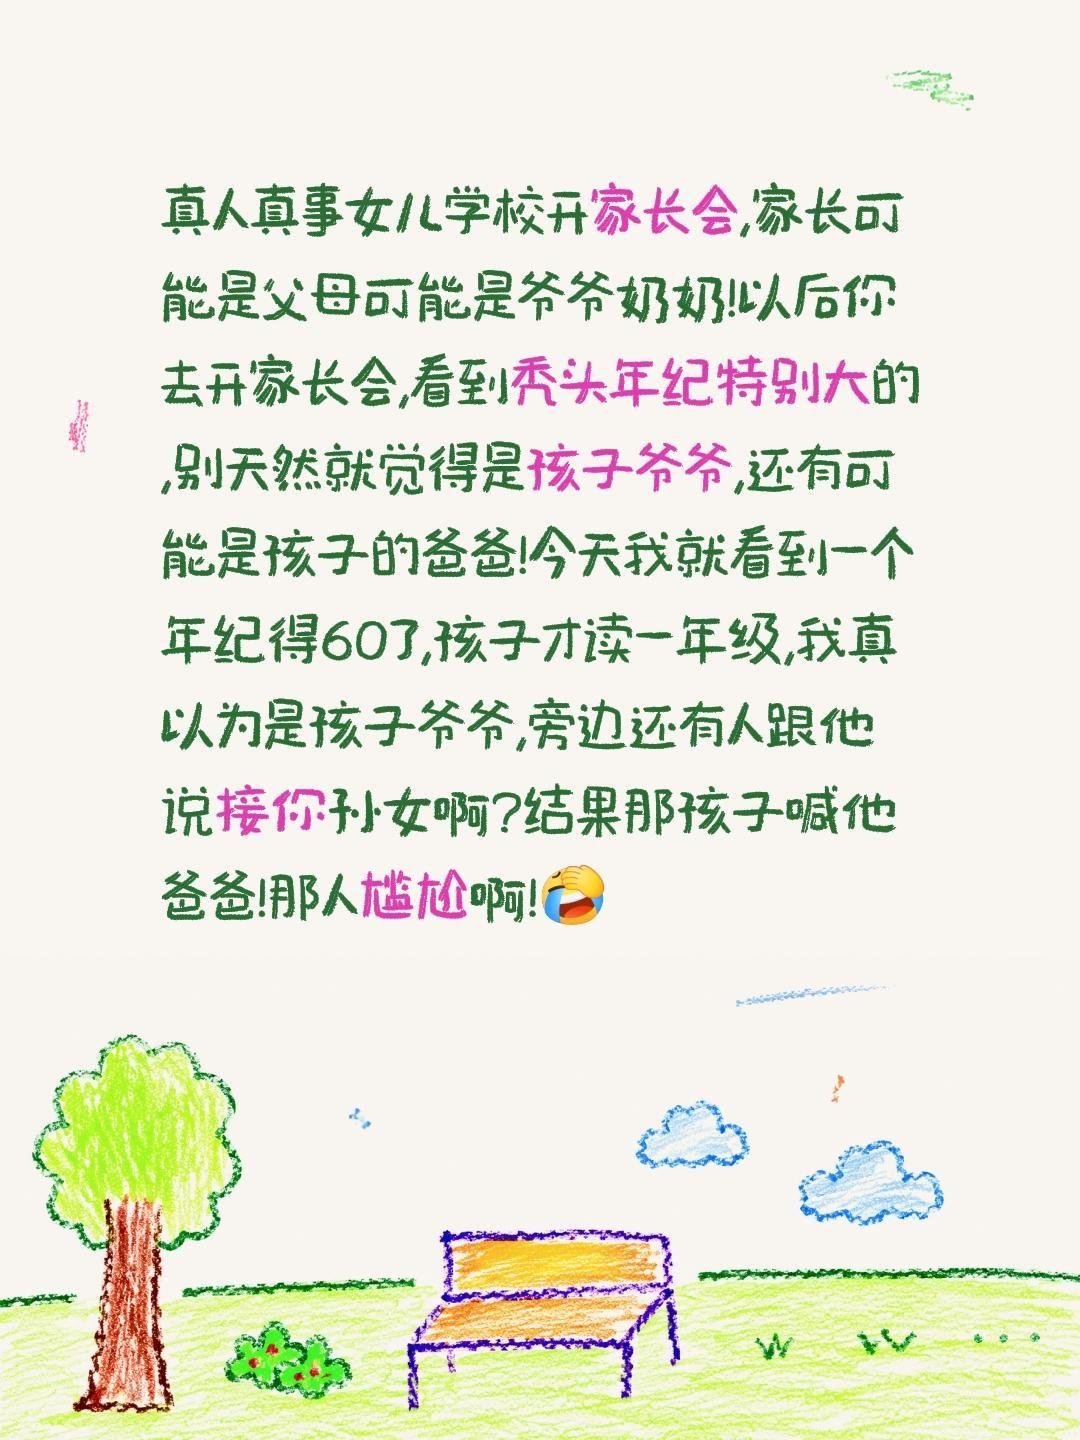 真人真事女儿学校开家长会,家长可
能是父母可能是爷爷奶奶!以后你
去开家长会,看到秃头年纪特别大的
,别天然就觉得是孩子爷爷,还有可
能是孩子的爸爸!今天我就看到一个
年纪得60了,孩子才读一年级,我真
以为是孩子爷爷,旁边还有人跟他
说接你孙女啊?结果那孩子喊他
爸爸!那人尴尬啊!🤣